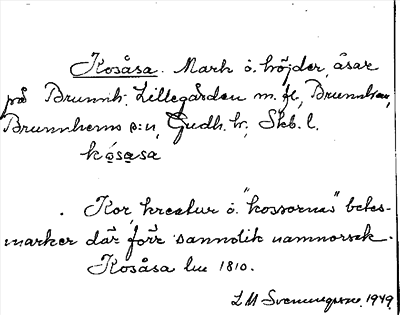 Kosåsa. Mark o. höjder, åsar
på Brunnh. Lillegården m. fl., Brunnhem,
Brunnhems s:n, Gudh. hr, Skb. l.
kósasa
Kor, kreatur o. "kossornas" betes-
marker där förr sannolik namnorsak.
Kosåsa lm 1810.
L M Svenungsson 1949.